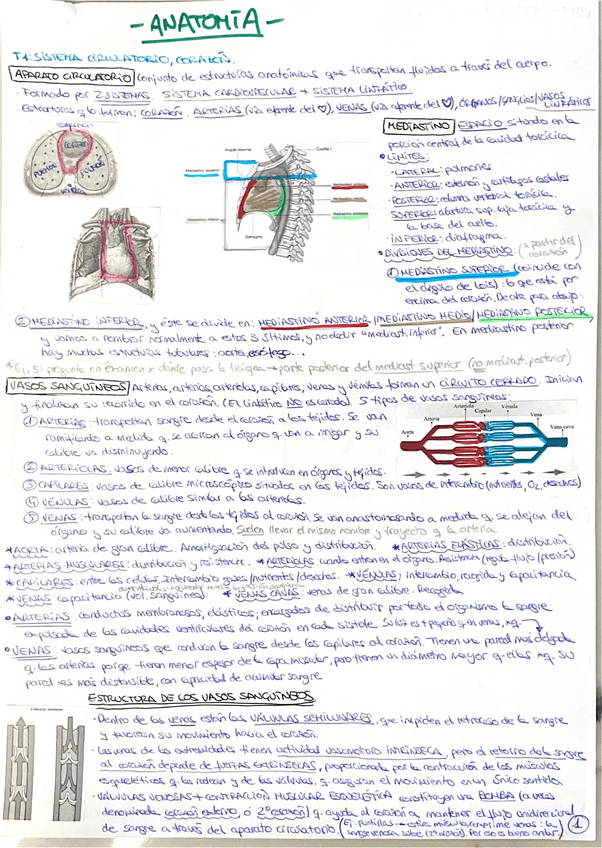 - ANATOMÍA -
T1: SISTEMA CIRCULATORIO, CORAZÓN.
APARATO CIRCULATORIO conjunto de estructuras anatómicas que transportan fluidos a través del cuerpo.
· Formado por 2 SISTEMAS SISTEMA CARDIOVASCULAR + SISTEMA LINFÁTICO.
Estructuras q lo forman: CORAZÓN, ARTERIAS (vía eferente del ♡), VENAS (vía aferente del ♡), ÓRGANOS/GANGLIOS/VASOS LINFÁTICOS
MEDIASTINO ESPACIO situado en la
porción central de la cavidad torácica
• LÍMITES:
· LATERAL: pulmones
· ANTERIOR: esternón y cartílagos costales
· POSTERIOR: columna vertebral torácica.
· SUPERIOR: abertura sup. caja torácica y
la base del cuello.
· INFERIOR: diafragma.
• DIVISIONES DEL MEDIASTINO: (a partir del corazón)
① MEDIASTINO SUPERIOR (coincide con
el ángulo de Louis): lo que está por
encima del corazón. De atrás para abajo:
CORAZÓN
PULMÓN
Ángulo esternal
Costilla 1
Mediastino superior
Mediastino inferior
Diafragma
② MEDIASTINO INFERIOR, y éste se divide en: MEDIASTINO ANTERIOR / MEDIASTINO MEDIO / MEDIASTINO POSTERIOR,
y vamos a nombrar normalmente a estos 3 últimos, y no decir "mediast. inferior". En mediastino posterior
hay muchas estructuras tubulares: aorta, esófago...
* Ej, si pregunta en examen x dónde pasa la tráquea → parte posterior del mediast superior (no mediast. posterior)
VASOS SANGUÍNEOS Arterias, arteriolas, capilares, venas y vénulas forman un CIRCUITO CERRADO. Inician
y finalizan su recorrido en el corazón. (El linfático NO es cerrado) 5 tipos de vasos sanguíneos:
① ARTERIAS - transportan sangre desde el corazón a los tejidos. Se van
ramificando a medida q. se acercan al órgano q van a irrigar y su
calibre va disminuyendo.
Aorta
Arteria
Arteriola
Capilar
Vénula
Vena
Vena cava
② ARTERIOLAS: vasos de menor calibre q. se introducen en órganos y tejidos.
③ CAPILARES: vasos de calibre microscópico situados en los tejidos. Son vasos de intercambio (nutrientes, O₂, desechos)
④ VÉNULAS: vasos de calibre similar a las arteriolas.
⑤ VENAS: transportan la sangre desde los tejidos al corazón. Se van anastomosando a medida q. se alejan del
órgano y su calibre va aumentando. Suelen llevar el mismo nombre y trayecto q la arteria
* AORTA: arteria de gran calibre. Amortiguación del pulso y distribución. * ARTERIAS ELÁSTICAS: distribución.
* ARTERIAS MUSCULARES: distribución y resistencia. * ARTERIOLAS cuando entran en el órgano. Resistencia (regula flujo/presión)
* CAPILARES: entre las células. Intercambio gases/nutrientes/desechos. * VÉNULAS; intercambio, recogida y capacitancia
* VENAS capacitancia (vol. sanguíneo). * VENAS CAVAS: venas de gran calibre. Recogida
• ARTERIAS conductos membranosos, elásticos; encargados de distribuir por todo el organismo la sangre
expulsada de las cavidades ventriculares del corazón en cada sístole.
• VENAS: vasos sanguíneos que conducen la sangre desde los capilares al corazón. Tienen una pared más delgada
q. las arterias porqe tienen menor espesor de la capa muscular, pero tienen un diámetro mayor q ellas xq. su
pared es más distensible, con capacidad de acumular sangre
ESTRUCTURA DE LOS VASOS SANGUÍNEOS
Válvulas venosas
· Dentro de las venas están las VÁLVULAS SEMILUNARES, que impiden el retroceso de la sangre
y favorecen su movimiento hacia el corazón.
· Las venas de las extremidades tienen actividad vasomotora INTRÍNSECA, pero el retorno de la sangre
al corazón depende de FUERZAS EXTRÍNSECAS, proporcionada por la contracción de los músculos
esqueléticos q las rodean y de las válvulas, q aseguran el movimiento en un único sentido.
· VÁLVULAS VENOSAS + CONTRACCIÓN MUSCULAR ESQUELÉTICA constituyen una BOMBA (a veces
denominada corazón externo, ó 2º corazón) q ayuda al corazón a mantener el flujo unidireccional
de sangre a través del aparato circulatorio.
1